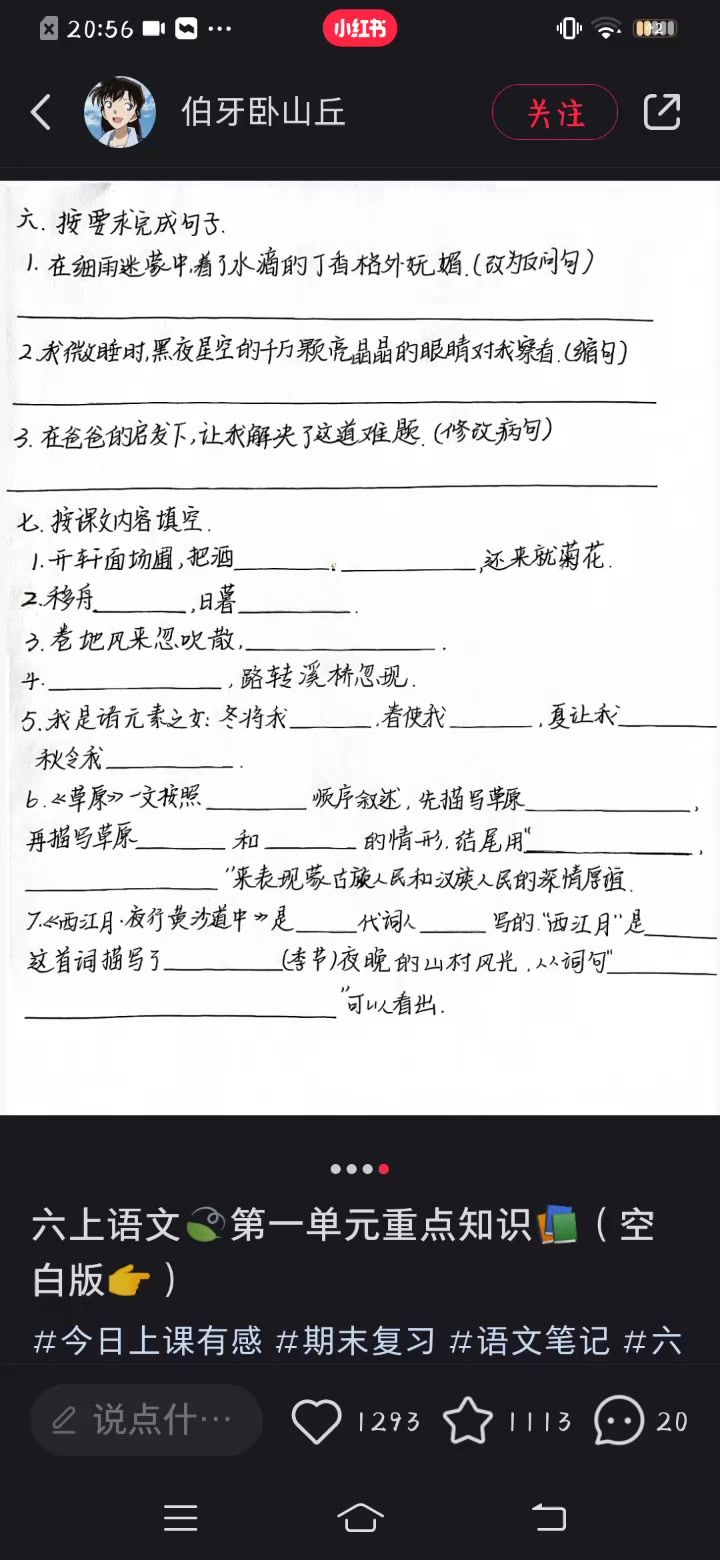 20:56
小红书
伯牙卧山丘
关注
六. 按要求完成句子.
1. 在细雨迷蒙中,着了水滴的丁香格外妩媚.(改为反问句)
2.我微睡时,黑夜星空的千万颗亮晶晶的眼睛对我察看.(缩句)
3. 在爸爸的启发下,让我解决了这道难题.(修改病句)
七. 按课文内容填空.
1. 开轩面场圃,把酒______. ______,还来就菊花.
2. 移舟______,日暮______.
3. 卷地风来忽吹散,______.
4. ______,路转溪桥忽现.
5. 我是诸元素之女: 冬将我______,春使我______,夏让我______
秋令我______.
6.《草原》一文按照______顺序叙述, 先描写草原______,
再描写草原______和______的情形. 结尾用"______,
______"来表现蒙古族人民和汉族人民的深情厚谊.
7.《西江月·夜行黄沙道中》是____代词人____写的."西江月"是____
这首词描写了______(季节)夜晚的山村风光, 从词句"______
______"可以看出.
六上语文🍃第一单元重点知识📚(空
白版👉)
#今日上课有感 #期末复习 #语文笔记 #六
说点什…
1293
1113
20